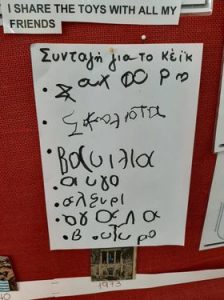 I SHARE THE TOYS WITH ALL MY
FRIENDS
Συνταγή για το κέικ
• Ζαχαρη
• Σοκολατα
• Βανιλια
• αυγο
• αλευρι
• ουαελα
• Βουτυρο
1973